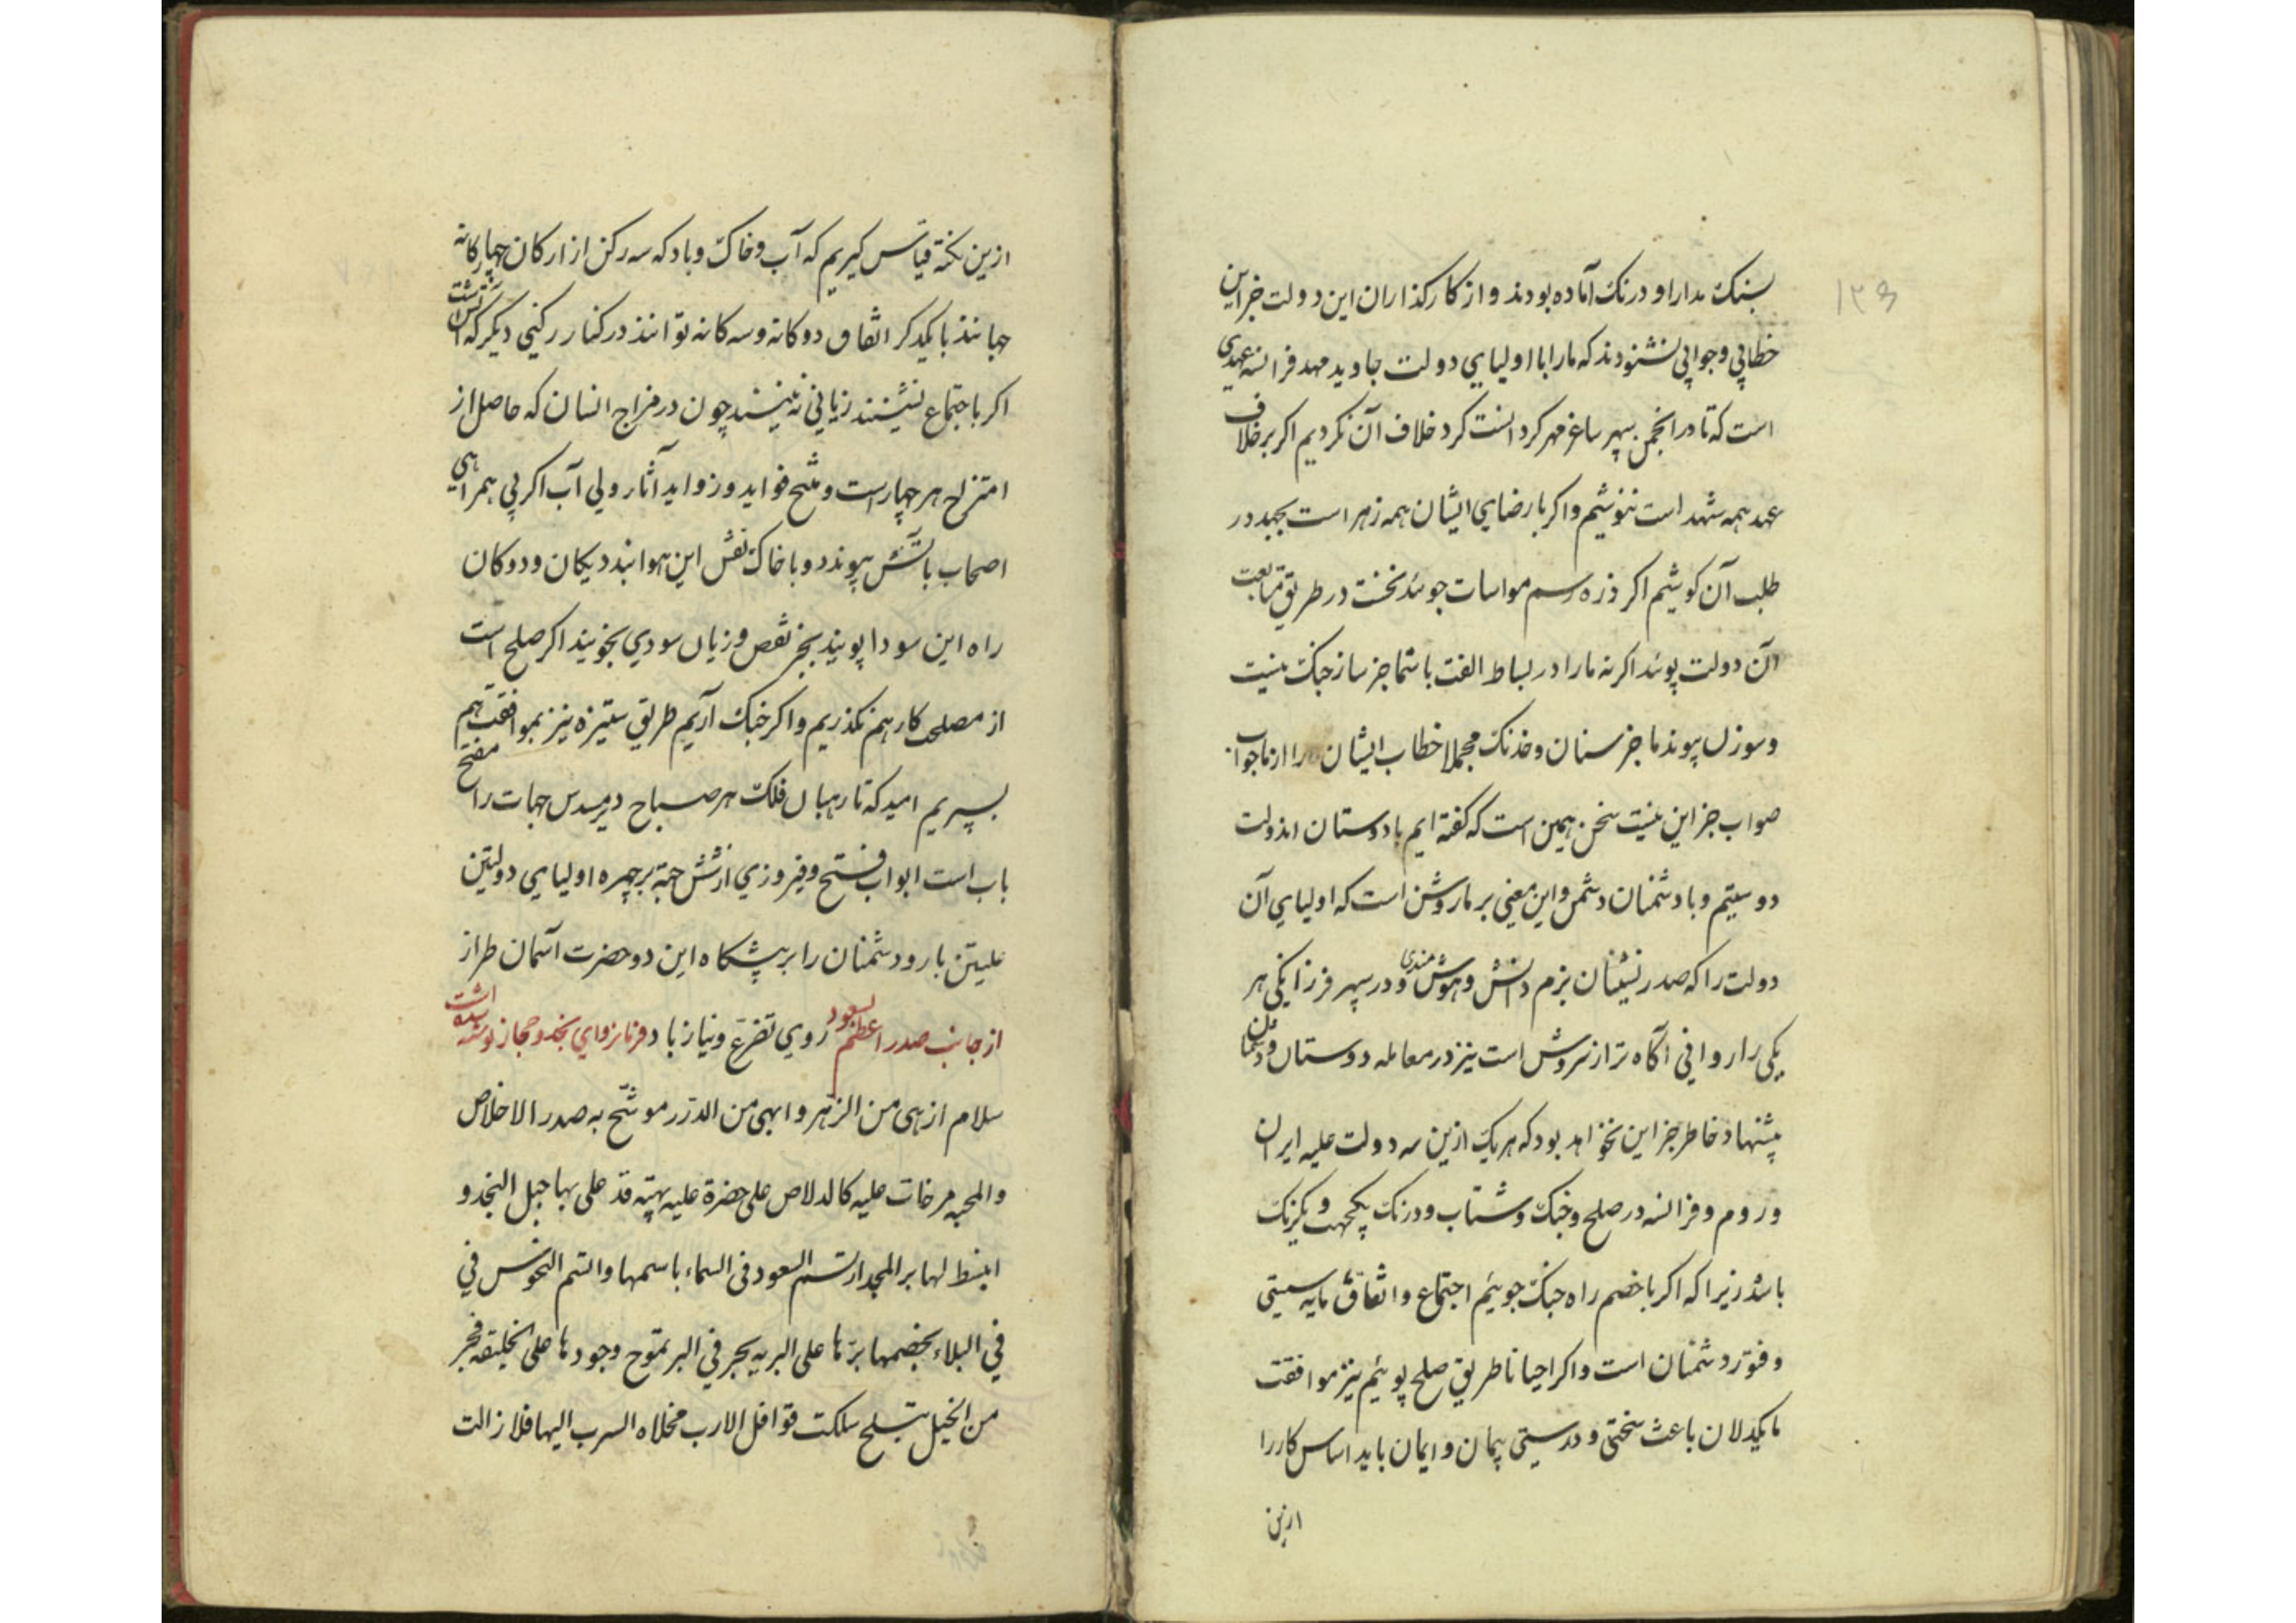 ۱۳۶
بسنک مدارا و درنک آماده بودند و از کارکذاران این دولت جز این
خطابی و جوابی نشنودند که ما را با اولیای دولت جاوید مهد فرانسه عهدی
است که تا در انجمن سپهر ساغر مهر کرد انست کرد خلاف آن نکردیم اکر بر خلاف
عهد همه شهد است ننوشیم و اکر با رضای ایشان همه زهر است بجهد در
طلب آن کوشیم اکر ذره رسم مواسات جوید نخست در طریق متابعت
آن دولت پوید اکر نه ما را در بساط الفت با شما جز ساز جنک نیست
و سوزن پیوند ما جز سنان و خدنک مجملا خطاب ایشان را از ما جواب
صواب جز این نیست سخن همین است که کفته ایم با دوستان اندولت
دوستیم و با دشمنان دشمن و این معنی بر ما روشن است که اولیای آن
دولت را که صدر نشینان بزم دانش و هوش مندی و در سپهر فرزانکی هر
یکی را روانی آکاه تر از سروش است نیز در معامله دوستان و دشمنان
پیشنهاد خاطر جز این نخواهد بود که هر یک ازین سه دولت علیه ایران
و روم و فرانسه در صلح و جنک و شتاب و درنک یکجهت و یکرنک
باشد زیرا که اکر با خصم راه جنک جوئیم اجتماع و اتفاق ما مایه سستی
و فتور دشمنان است و اکر احیانا طریق صلح پوئیم نیز موافقت
ما یکدلان باعث سختی و درستی پیمان و ایمان باید اساس کار را
ازین
ازین نکته قیاس کیریم که آب و خاک و باد که سه رکن از ارکان چهارکانه
جهانند با یکدکر اتفاق دوکانه و سه کانه توانند در کنار رکنی دیکر که آتش است
اکر باجتماع نشینند زیانی نه بینند چون در مزاج انسان که حاصل از
امتزاج هر چهار است و منتج فواید و زواید آثار ولی آب اکر بی همراهی
اصحاب باتش پیوندد و با خاک نقش این هوا بندد یکان و دوکان
راه این سودا پویند بجز نقص و زیان سودی نجویند اکر صلح است
از مصلحت کار هم نکذریم و اکر جنک آریم طریق ستیزه نیز بموافقت هم
بسپریم امید که تا رهبان فلک هر صباح دیر مسدس جهات را مفتح
باب است ابواب فتح و فیروزی از شش جهة بر چهره اولیای دولتین
علیتین باز و دشمنان را بر پیشکاه این دو حضرت آسمان طراز
روی تضرع و نیاز باد از جانب صدر اعظم بسعود فرمانروای نجد و حجاز نوشته شده است
سلام ازهی من الزهر و ابهی من الدرر موشح به صدر الاخلاص
والمحبه مرخات علیه کالدلاص علی حضرة علیه بهیته قد علی بها جبل النجد و
انبسط لها بر المجد ارتسم السعود فی السماء باسمها و التسم النحوس فی
فی البلاء بخصمها برّها علی البریه یجر فی البر تموج وجودها علی الخلیقه فجر
من الخیل تبلج سلکت قوافل الارب مخلاه السرب الیها فلا زالت